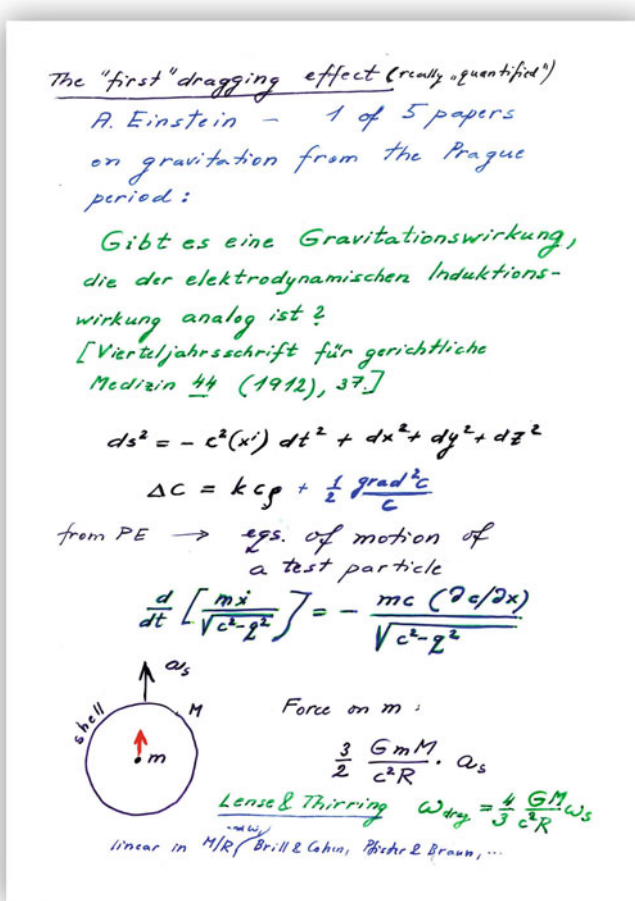 The "first" dragging effect (really „quantified")
A. Einstein – 1 of 5 papers
on gravitation from the Prague
period:
Gibt es eine Gravitationswirkung,
die der elektrodynamischen Induktions-
wirkung analog ist?
[Vierteljahrsschrift für gerichtliche
Medizin 44 (1912), 37.]
ds² = - c²(xⁱ) dt² + dx² + dy² + dz²
Δc = k c ρ + 1/2 grad²c/c
from PE → eqs. of motion of
a test particle
d/dt [mẋ/√(c²-q²)] = - mc (∂c/∂x)/√(c²-q²)
a_s
shell
M
m
Force on m:
3/2 GmM/c²R · a_s
Lense & Thirring ω_drag = 4/3 GM/c²R ω_s
and ω,
linear in M/R ( Brill & Cohen, Pfister & Braun, ...